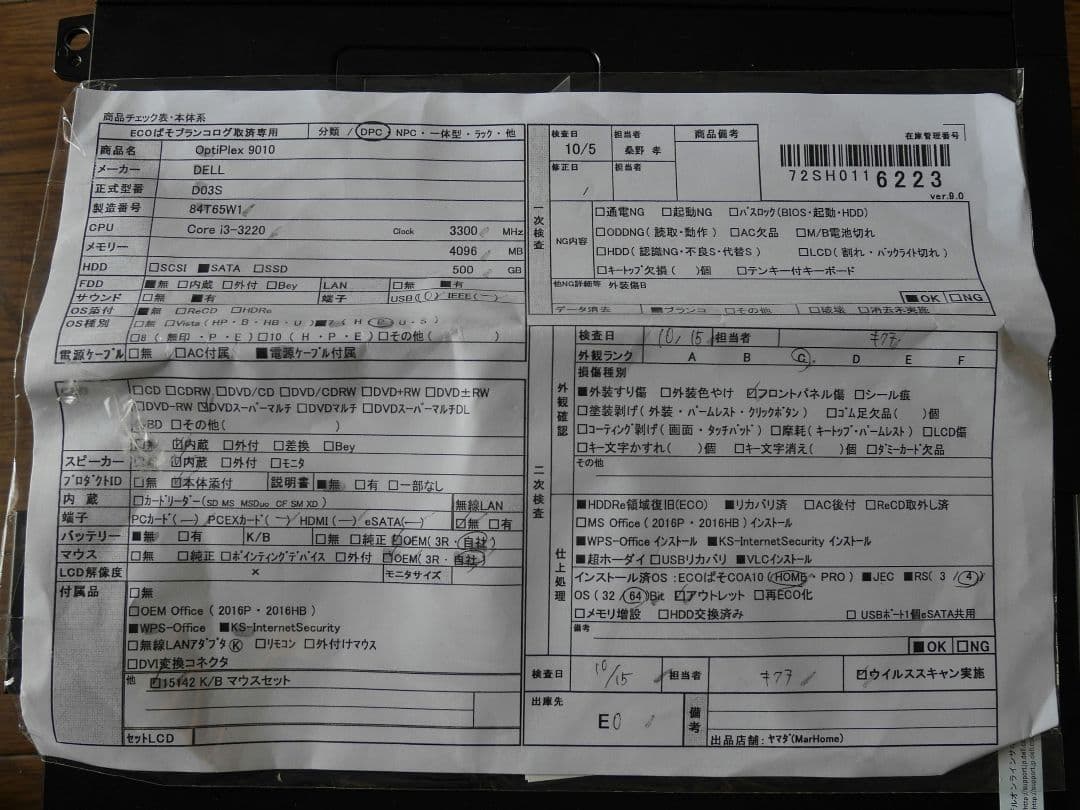 商品チェック表・本体系
ECOぱそブランコログ取済専用 分類 / DPC・NPC・一体型・ラック・他
商品名 OptiPlex 9010
メーカー DELL
正式型番 D03S
製造番号 84T65W1
CPU Core i3-3220 Clock 3300 MHz
メモリー 4096 MB
HDD □SCSI ■SATA □SSD 500 GB
FDD ■無 □内蔵 □外付 □Bey LAN □無 ■有
サウンド □無 ■有 端子 USB( ) IEEE(ー)
OS添付 ■無 □ReCD □HDRe
OS種別 □無 □Vista (HP・B・HB・U) ■7( H P U・S )
□8 (無印・P・E) □10 (H・P・E) □その他( )
電源ケーブル □無 □AC付属 ■電源ケーブル付属
□CD □CDRW □DVD/CD □DVD/CDRW □DVD+RW □DVD±RW
□DVD-RW ☑DVDスーパーマルチ □DVDマルチ □DVDスーパーマルチDL
□BD □その他( )
☑内蔵 □外付 □差換 □Bey
スピーカー ☑内蔵 □外付 □モニタ
プロダクトID □無 ☑本体添付 説明書 ■無 □有 □一部なし
内蔵 □カードリーダー(SD MS MSDuo CF SM XD)
端子 PCカード(ー) PCEXカード(ー) HDMI(ー) eSATA(ー)
無線LAN
☑無 □有
バッテリー ■無 □有 K/B □無 □純正 ☑OEM(3R・自社)
マウス □無 □純正 □ポインティングデバイス □外付 ☑OEM(3R・自社)
LCD解像度 × モニタサイズ
付属品 □無
□OEM Office (2016P・2016HB)
■WPS-Office ■KS-InternetSecurity
□無線LANアダプタⓀ □リモコン □外付けマウス
□DVI変換コネクタ
他 ☑15142 K/B マウスセット
セットLCD
一次検査
検査日 10/5 担当者 桑野 孝 商品備考
修正日 / 担当者
在庫管理番号
72SH011 6223
ver.9.0
NG内容 □通電NG □起動NG □パスロック(BIOS・起動・HDD)
□ODDNG(読取・動作) □AC欠品 □M/B電池切れ
□HDD(認識NG・不良S・代替S) □LCD(割れ・バックライト切れ)
□キートップ欠損( )個 □テンキー付キーボード
他NG詳細等 外装傷B
■OK □NG
データ消去 ■ブランコ □その他 □破壊 □消去未実施
二次検査
検査日 10/15 担当者
外観確認
外観ランク A B C D E F
損傷種別
■外装すり傷 □外装色やけ ☑フロントパネル傷 □シール痕
□塗装剥げ(外装・パームレスト・クリックボタン) □ゴム足欠品( )個
□コーティング剥げ(画面・タッチパッド) □摩耗(キートップ・パームレスト) □LCD傷
□キー文字かすれ( )個 □キー文字消え( )個 □ダミーカード欠品
その他
仕上処理
■HDDRe領域復旧(ECO) ■リカバリ済 □AC後付 □ReCD取外し済
□MS Office (2016P・2016HB) インストール
■WPS-Office インストール ■KS-InternetSecurity インストール
■超ホーダイ □USBリカバリ ■VLCインストール
インストール済OS:ECOぱそCOA10(HOME・PRO) ■JEC ■RS(3/4)
OS(32/64)Bit ☑アウトレット □再ECO化
□メモリ増設 □HDD交換済み □USBポート1個eSATA共用
備考
■OK □NG
検査日 10/15 担当者 ☑ウイルススキャン実施
出庫先 EO 備考
出品店舗:ヤマダ(MarHome)